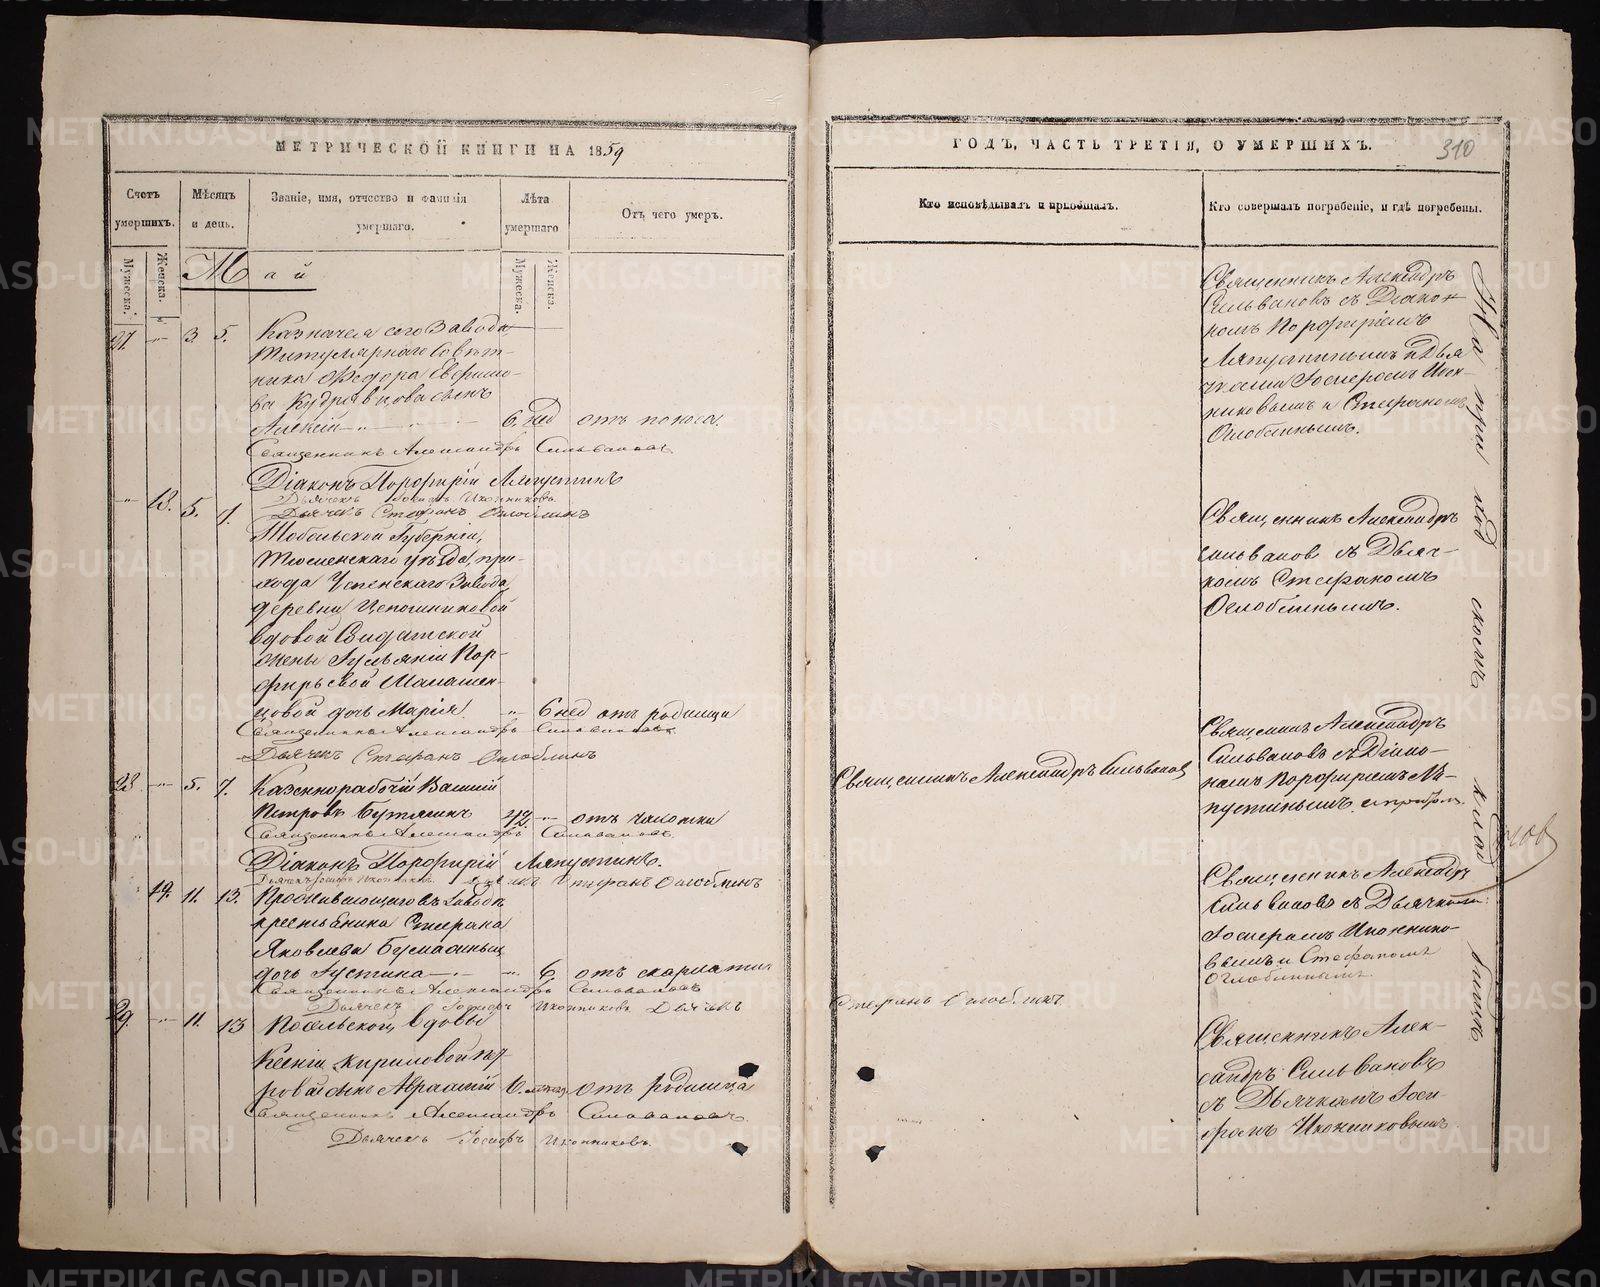 МЕТРИЧЕСКОЙ КНИГИ НА 1859
Счетъ умершихъ.
Мѣсяцъ и день.
Званіе, имя, отчество и фамилія умершаго.
Лѣта умершаго
Отъ чего умеръ.
Мужеска.
Женска.
Мужеска.
Женска.
Май
3 5. Казначея сего Завода
Титулярнаго Совѣт-
ника Федора Ефимо-
ва Кудрявцова сынъ
Алексій 6. нед отъ поноса.
Священникъ Александръ Сильвановъ
Діаконъ Порфирій Ляпустинъ
Дьячекъ Іосифъ Иконниковъ
Дьячекъ Стефанъ Оглоблинъ
18. 5. 7.
Тобольской Губерніи,
Тюменскаго уѣзда, при-
хода Успенскаго Завода,
деревни
вдовой Солдатской
жены Іульяніи Пор-
фирьевой
цовой дочь Марія 6 нед отъ родимца
Священникъ Александръ Сильвановъ
Дьячекъ Стефанъ Оглоблинъ
28 5. 7. Казеннорабочій Василій
Петровъ 42. отъ чахотки
Священникъ Александръ Сильвановъ.
Діаконъ Порфирій Ляпустинъ.
Дьячекъ Іосифъ Иконниковъ Дьячекъ Стефанъ Оглоблинъ
19. 11. 13. Проживающаго въ Заводѣ
крестьянина Стефана
Яковлева
дочь Іустина 6. отъ скарлати
Священникъ Александръ Сильвановъ
Дьячекъ Іосифъ Иконниковъ Дьячекъ
29. 11. 13 Посельской вдовы
Ксеніи Кириловой
сынъ 6. отъ родимца
Священникъ Александръ Сильвановъ
Дьячекъ Іосифъ Иконниковъ.
ГОДЪ, ЧАСТЬ ТРЕТІЯ, О УМЕРШИХЪ.
310
Кто исповѣдывалъ и пріобщалъ.
Кто совершалъ погребеніе, и гдѣ погребены.
Священникъ Александръ
Сильвановъ съ Діако-
номъ Порфиріемъ
Ляпустинымъ и Дья
чками Іосифомъ Икон-
никовымъ и Стефаномъ
Оглоблинымъ.
Священникъ Александръ
Сильвановъ съ Дьяч-
комъ Стефаномъ
Оглоблинымъ.
Священникъ Александръ Сильвановъ
Священникъ Александръ
Сильвановъ съ Діако-
номъ Порфиріемъ Ля-
пустинымъ
Священникъ Александръ
Сильвановъ съ Дьячками
Іосифомъ Иконнико-
вымъ и Стефаномъ
Оглоблинымъ
Стефанъ Оглоблинъ
Священникъ Алек-
сандръ Сильвановъ
съ Дьячкомъ Іоси-
фомъ Иконниковымъ
На приходскомъ кладбищѣ
METRIKI.GASO-URAL.RU